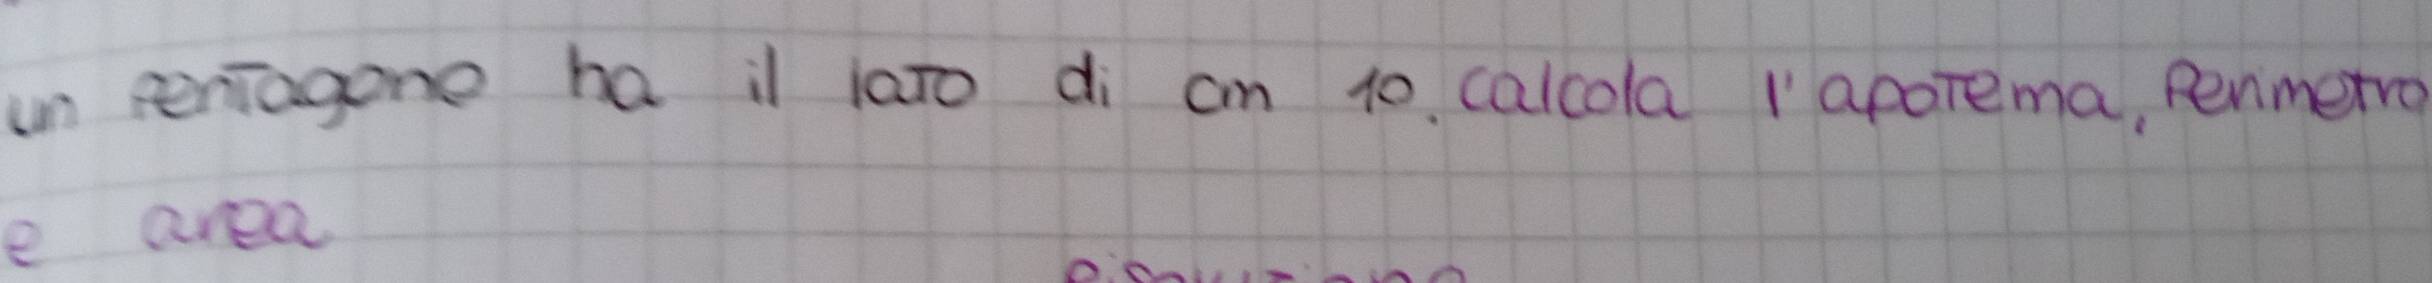 un pentagono ha il lato di cm 10. calcola l'apotema, Perimetro
e area